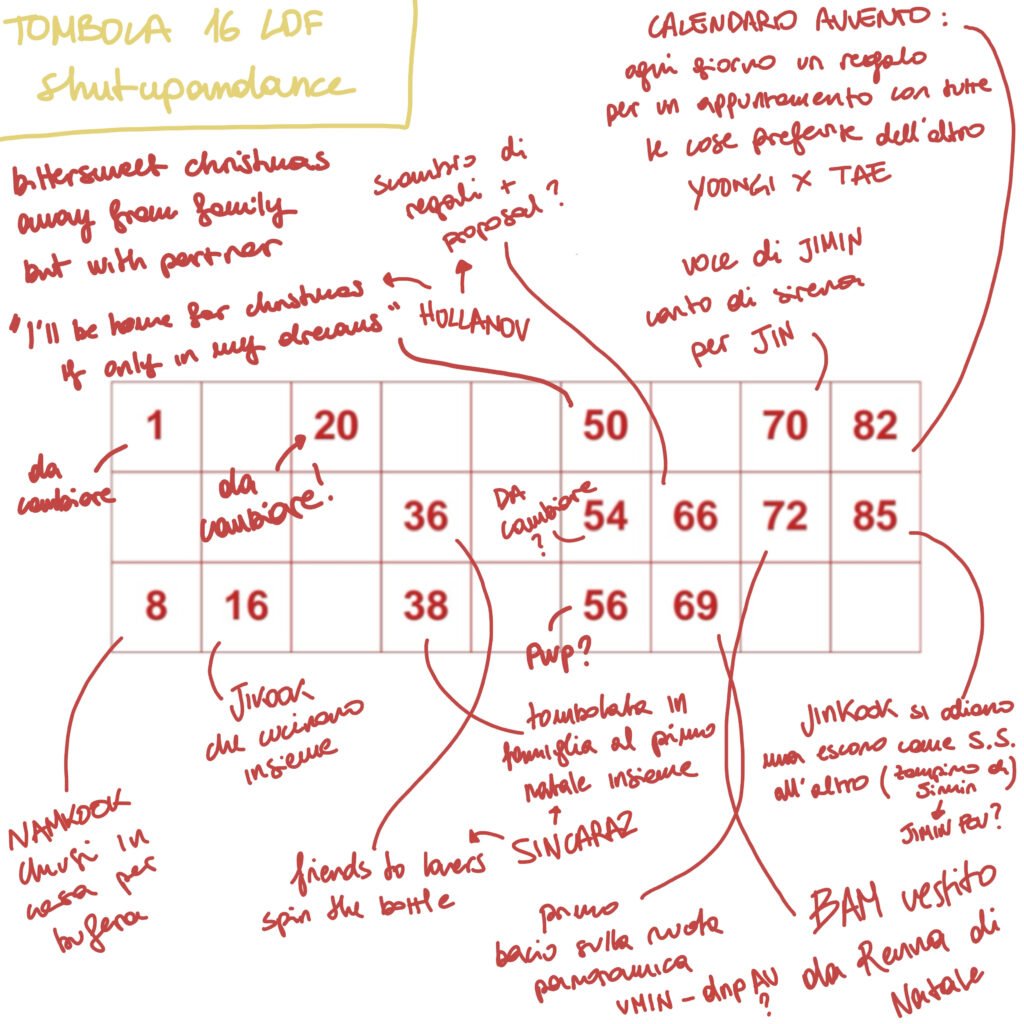 TOMBOLA 16 LDF
shutupandance
CALENDARIO AVVENTO:
ogni giorno un regalo
per un appuntamento con tutte
le cose preferite dell'altro
YOONGI X TAE
bittersweet christmas
away from family
but with partner
"I'll be home for christmas
if only in my dreams"
scambio di
regali +
proposal?
HOLLANOV
voce di JIMIN
canto di sirena
per JIN
1 20 50 70 82
da
cambiare
da
cambiare!
36 54 66 72 85
DA
cambiare
?
8 16 38 56 69
PWP?
NAMKOOK
chiusi in
casa per
bufera
JIKOOK
che cucinano
insieme
friends to lovers
spin the bottle
SINCARAZ
tombolata in
famiglia al primo
natale insieme
primo
bacio sulla ruota
panoramica
VMIN - dnp AU
?
BAM vestito
da Renna di
Natale
JINKOOK si odiano
ma escono come S.S.
all'altro (zampino di
Jimin)
JIMIN POV?